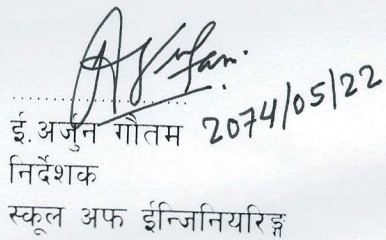 ई. अर्जुन गौतम 2074/05/22
निर्देशक
स्कूल अफ ईन्जिनियरिङ्ग